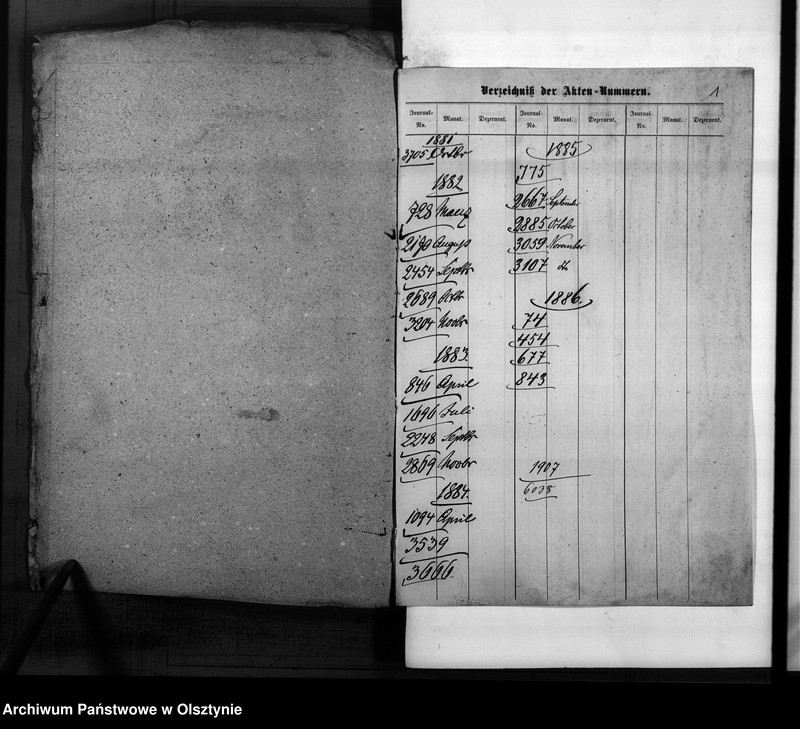 Verzeichniß der Akten-Nummern.
1
Journal-No. Monat. Dezernent. Journal-No. Monat. Dezernent. Journal-No. Monat. Dezernent.
1881
3705 Octbr
1882
728 Maerz
2170 August
2454 Septbr
2689 Octbr
3204 Novbr
1883.
846 April
1696 Juli
2248 Septbr
2869 Novbr
1884.
1094 April
3539
3666.
1885
775
2667 September
2885 October
3059 November
3107 do
1886.
74
454
677
843
1907
6038
Archiwum Państwowe w Olsztynie